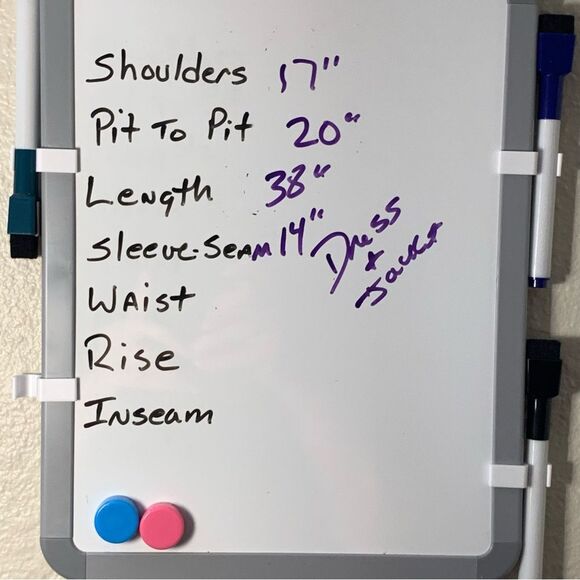 Shoulders 17"
Pit To Pit 20"
Length 38"
Sleeve-Seam 14"
Dress
+
Jacket
Waist
Rise
Inseam